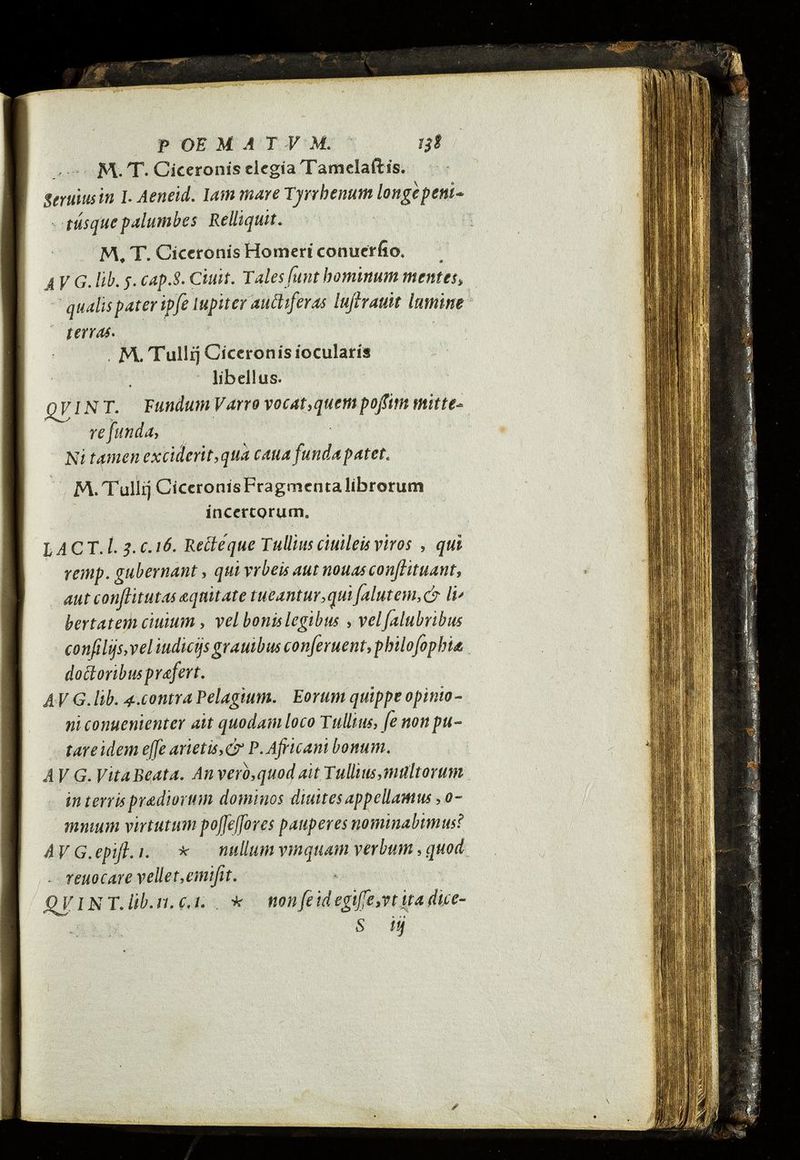 P OE M A T V M. 138
M. T. Ciceronis elegia Tamelaſtis.
Seruius in I. Aeneid. Iam mare Tyrrhenum longè peni-
túsque palumbes Relliquit.
M. T. Ciceronis Homeri conuerſio.
A V G. lib. 5. cap. 8. Ciuit. Tales ſunt hominum mentes,
qualis pater ipſe Iupiter auctiferas luſtrauit lumine
terras.
M. Tullij Ciceronis iocularis
libellus.
QVINT. Fundum Varro vocat, quem poſſim mitte-
re funda,
Ni tamen exciderit, quà caua funda patet.
M. Tullij Ciceronis Fragmenta librorum
incertorum.
LACT. l. 3. c. 16. Rectéque Tullius ciuileis viros , qui
remp. gubernant , qui vrbeis aut nouas conſtituant,
aut conſtitutas æquitate tueantur, qui ſalutem, & li-
bertatem ciuium , vel bonis legibus , vel ſalubribus
conſilijs, vel iudicijs grauibus conſeruent, philoſophiæ
doctoribus præfert.
AV G. lib. 4. contra Pelagium. Eorum quippe opinio-
ni conuenienter ait quodam loco Tullius, ſe non pu-
tare idem eſſe arietis, & P. Africani bonum.
A V G. Vita Beata. An verò, quod ait Tullius, multorum
in terris prædiorum dominos diuites appellamus , o-
mnium virtutum poſſeſſores pauperes nominabimus?
A V G. epiſt. 1. * nullum vmquam verbum , quod
reuocare vellet, emiſit.
QVINT. lib. 11. c. 1. * non ſe id egiſſe, vt ita dice-
S iij